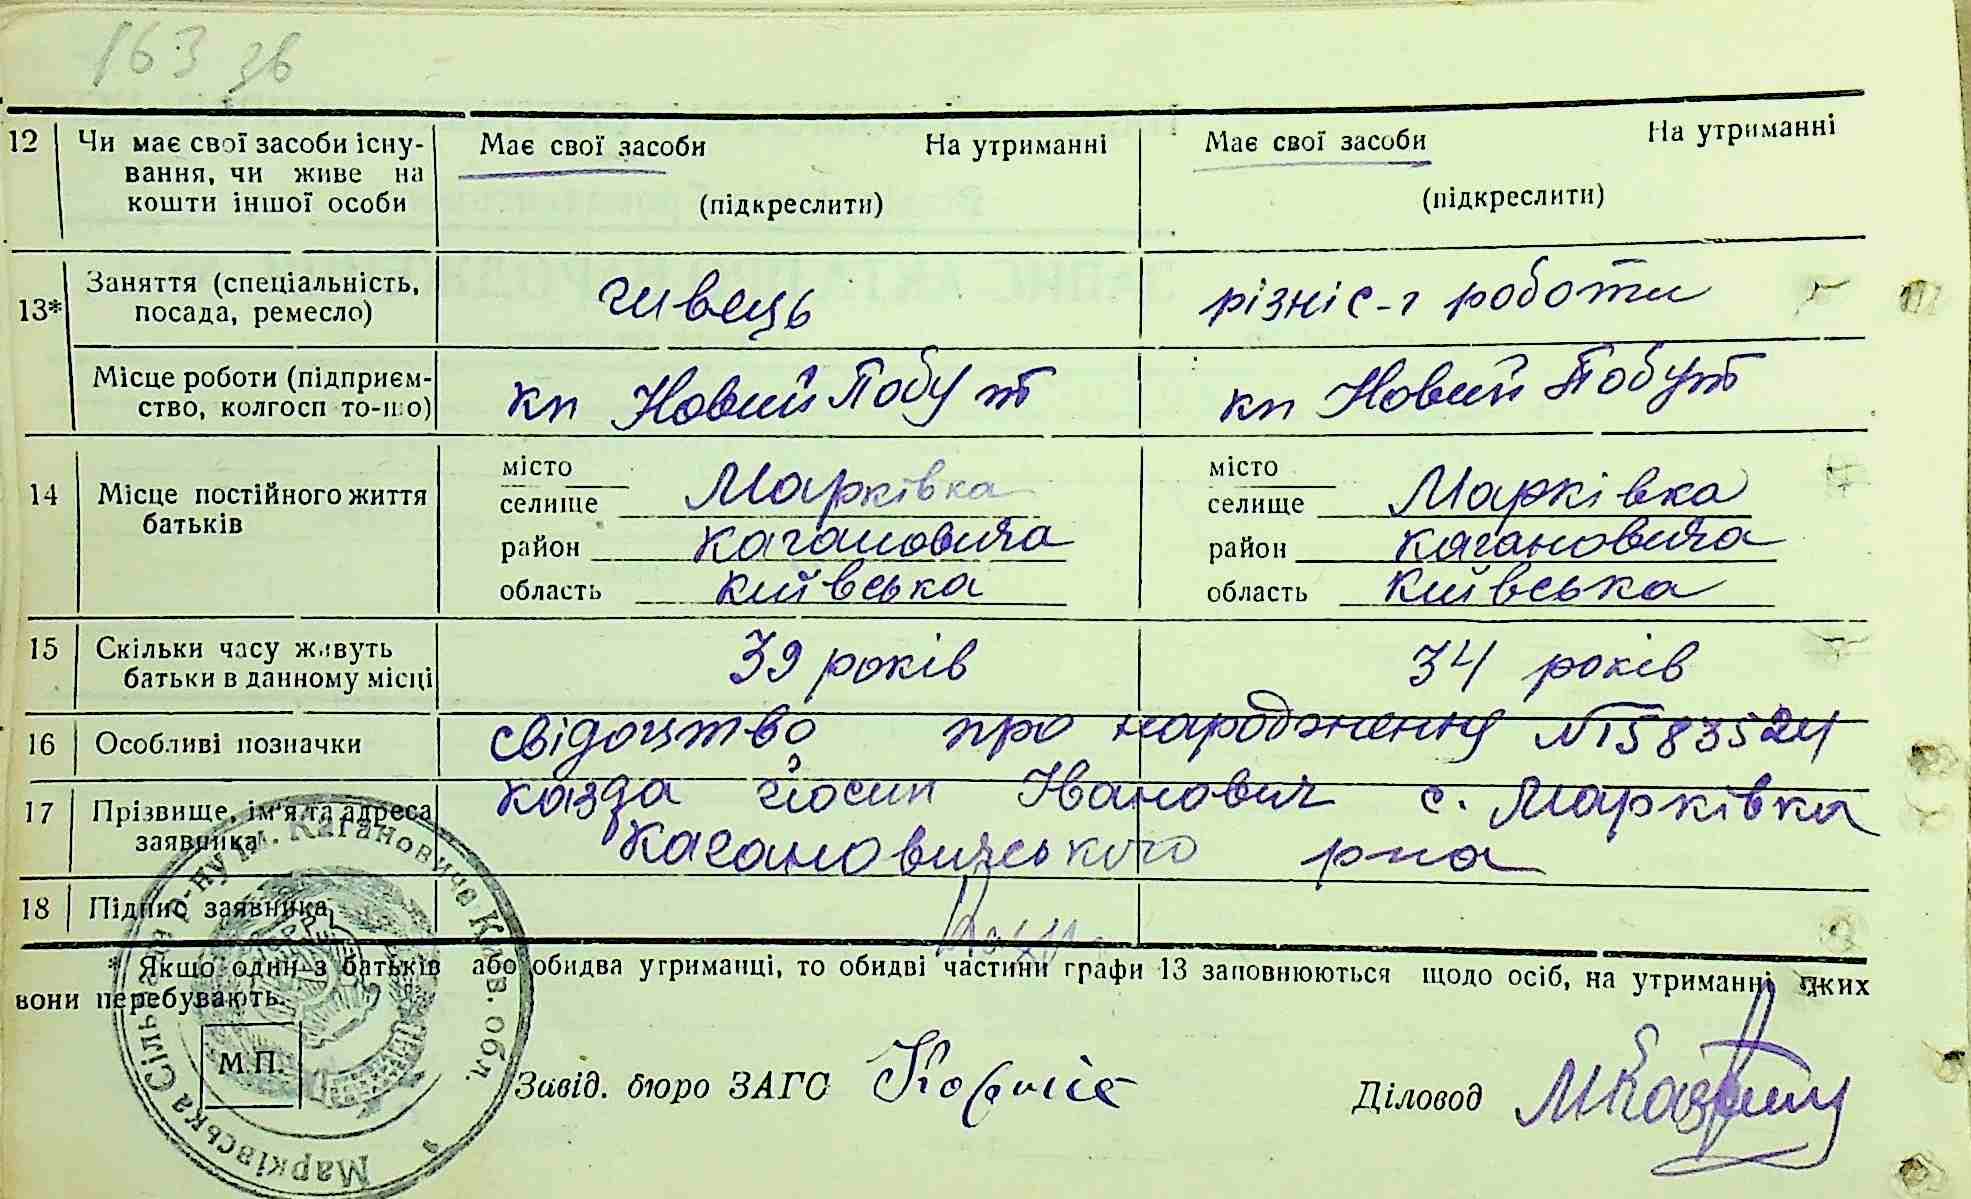 163 зв
12 Чи має свої засоби існу- Має свої засоби На утриманні Має свої засоби На утриманні
вання, чи живе на
кошти іншої особи (підкреслити) (підкреслити)
13* Заняття (спеціальність, посада, ремесло) швець різніє-г роботи
Місце роботи (підприєм- кп Новий Побут кп Новий Побут
ство, колгосп то-що)
14 Місце постійного життя батьків
місто місто
селище Марківка селище Марківка
район Кагановича район Кагановича
область Київська область Київська
15 Скільки часу живуть 39 років 34 років
батьки в данному місці
16 Особливі позначки свідоцтво про народження № 583524
17 Прізвище, ім'я та адреса Казда Йосип Іванович с. Марківка
заявника Кагановичського р-на
18 Підпис заявника
* Якщо один з батьків або обидва утриманці, то обидві частини графи 13 заповнюються щодо осіб, на утриманні яких
вони перебувають.
М.П. Завід. бюро ЗАГС Діловод
Марківська Сільрада р-ну ім. Кагановиче Київ. обл.